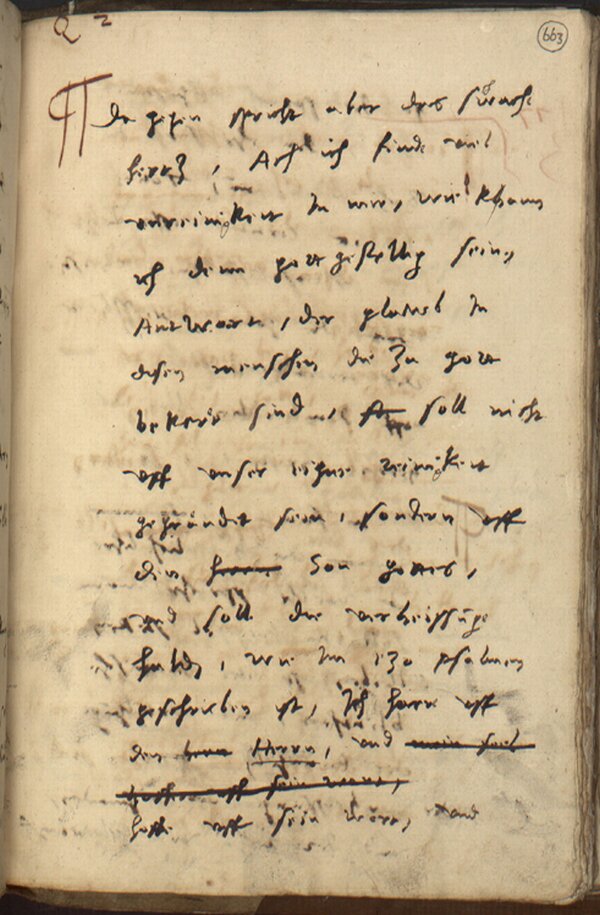 Q 2
663
Da gegen spricht aber das schwach
hertz, Ach ich finde viel
unreinigkeit in mir, wie khann
ich denn gott gefellig sein,
Antwort, der glaub in
disen menschen die zu gott
bekert sind, soll nicht
uff unser eigne reinigkeit
gegründet sein, sondern uff
den herrn Son gottes,
und soll die verheissung
halden, wie im 130 psalmen
geschriben ist, Ich harr uff
den herrn Herrn, und mein seel
hoffet uff sein wort,
hoffe uff sein wort, und